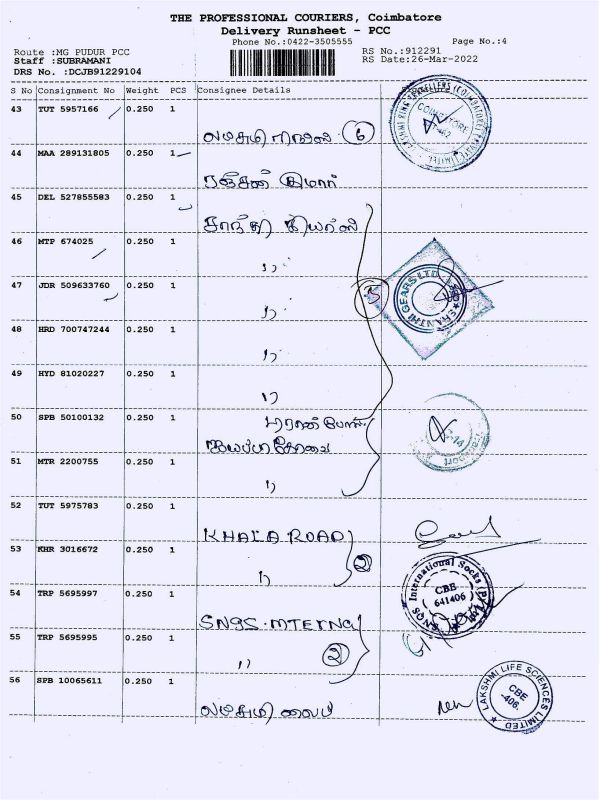 THE PROFESSIONAL COURIERS, Coimbatore
Delivery Runsheet - PCC
Phone No.:0422-3505555
Page No.:4
Route :MG PUDUR PCC
RS No.:912291
Staff :SUBRAMANI
RS Date:26-Mar-2022
DRS No. :DCJB91229104
S No Consignment No Weight PCS Consignee Details
43 TUT 5957166 0.250 1
6
44 MAA 289131805 0.250 1
45 DEL 527855583 0.250 1
சாந்தி கியர்ஸ்
46 MTP 674025 0.250 1
"
47 JDR 509633760 0.250 1
5
SHANTHI GEARS LTD
"
48 HRD 700747244 0.250 1
"
49 HYD 81020227 0.250 1
"
50 SPB 50100132 0.250 1
51 MTR 2200755 0.250 1
"
52 TUT 5975783 0.250 1
KHALA ROAD
53 KHR 3016672 0.250 1
" 2
International Socks (P)
CBE
641406
54 TRP 5695997 0.250 1
55 TRP 5695995 0.250 1
" 2
56 SPB 10065611 0.250 1
LAKSHMI LIFE SCIENCES LIMITED
CBE
-406.
லட்சுமி லைப்